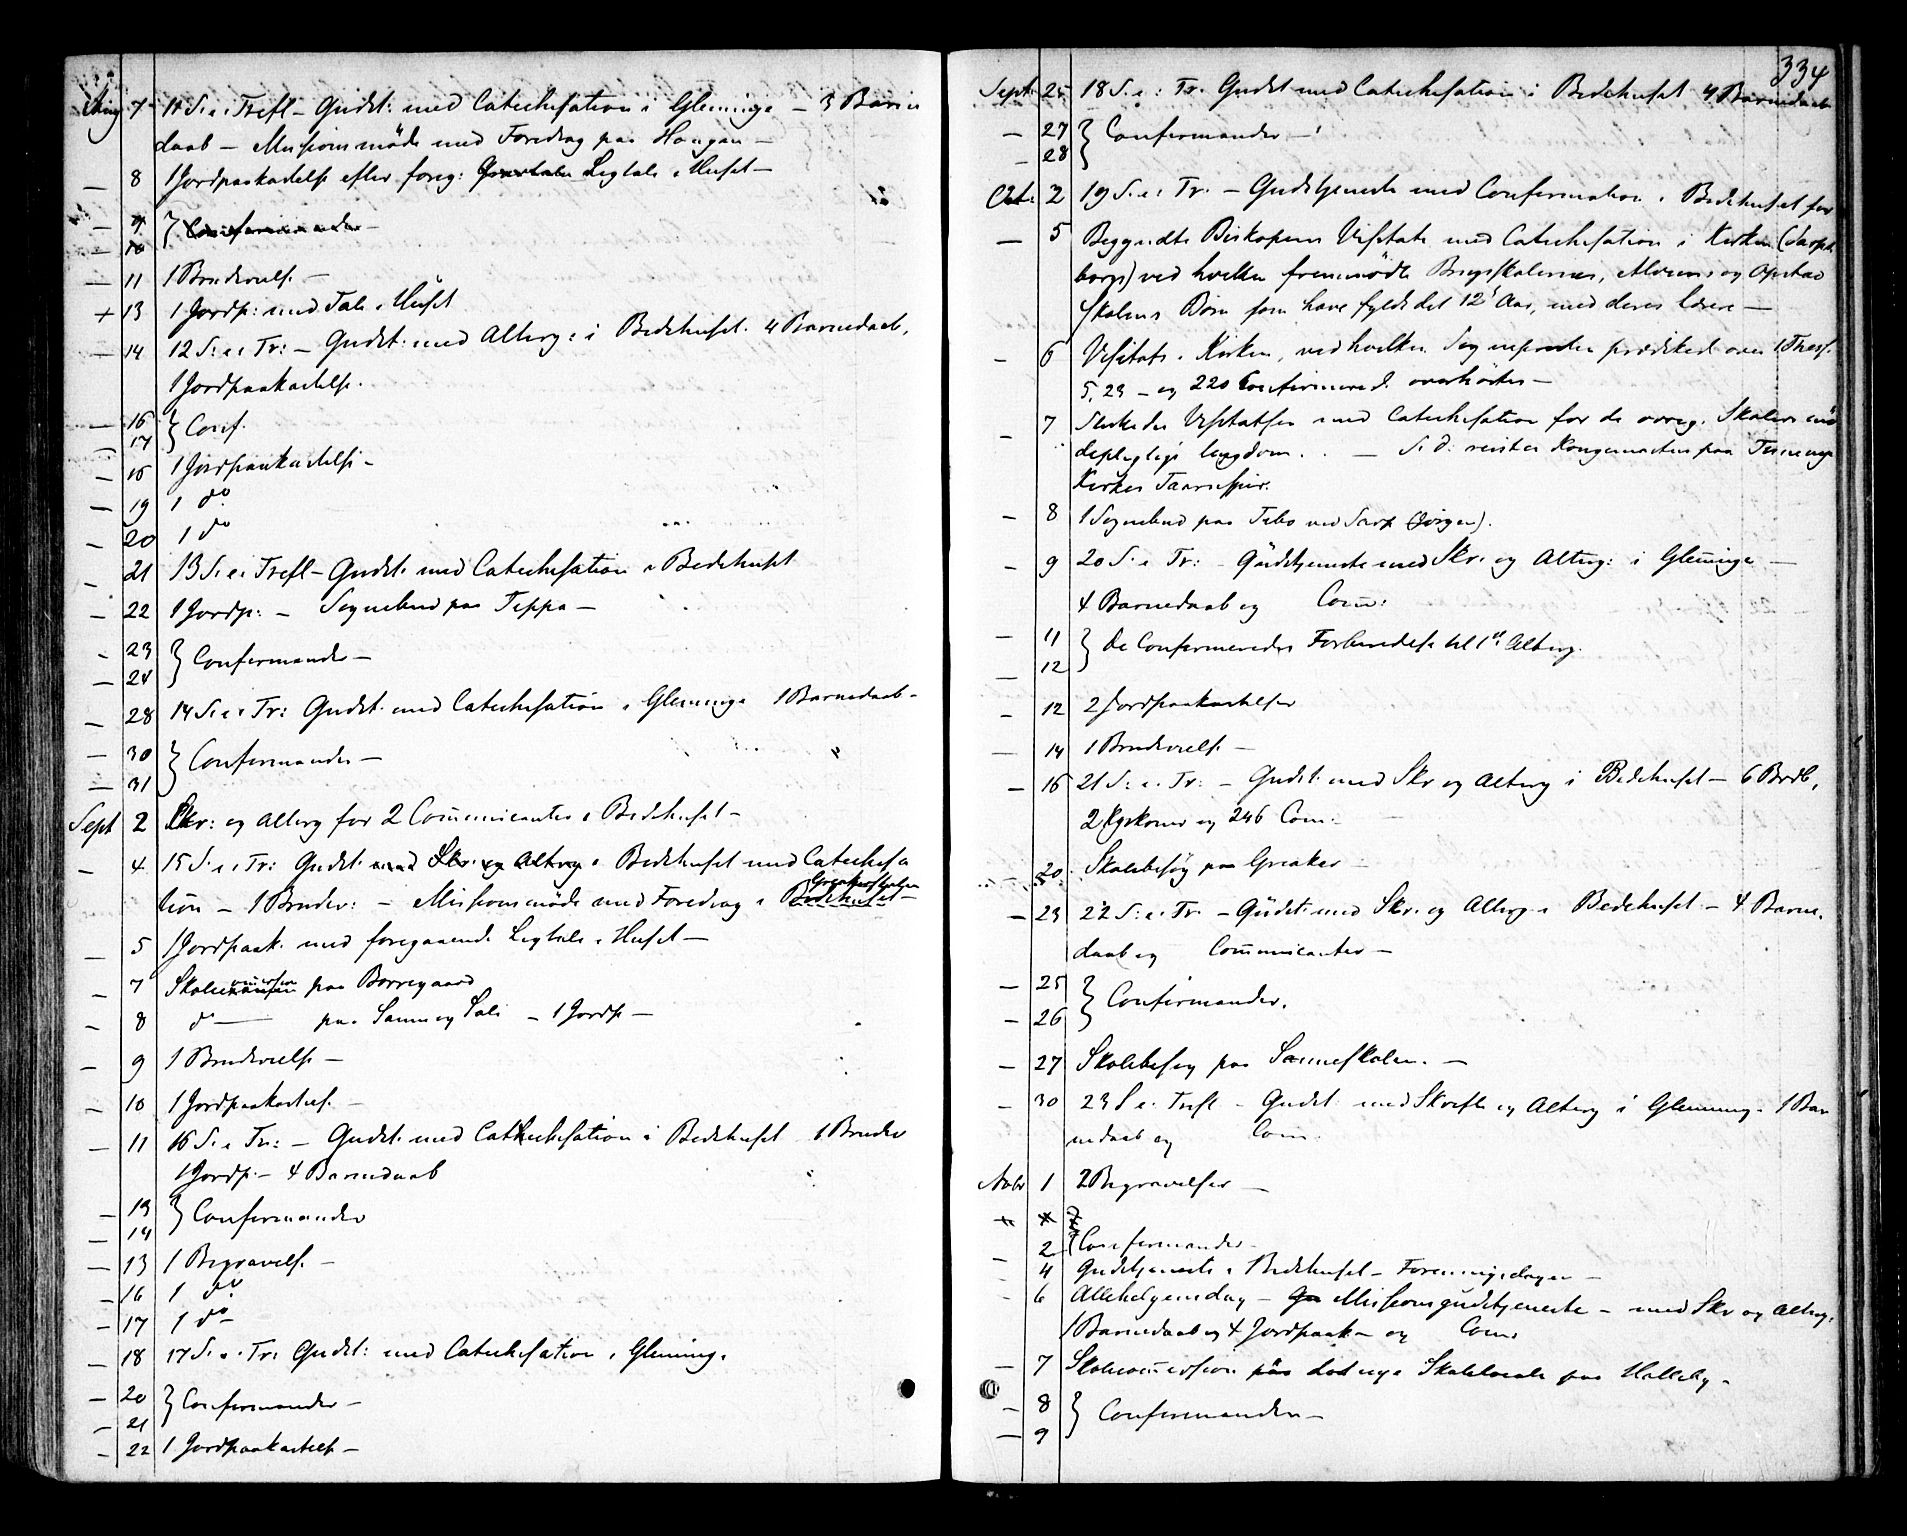 Aug 7 11 S. e. Trefl – Gudst: med Catechesation i Glemminge – 3 Barne
daab – Missionsmöde med Foredrag paa Haugen –
– 8 1 Jordpaakastelse efter foreg: Ligtale i Huset –
– 9
– 10 } Confirmander –
– 11 1 Brudevielse –
+ 13 1 Jordp: med Tale i Huset
– 14 12 S. e. Tr: – Gudst: med Alterg: i Bedehuset. 4 Barnedaab,
1 Jordpaakastelse.
– 16
– 17 } Conf.
– 18 1 Jordpaakastelse –
– 19 1 do
– 20 1 do
– 21 13 S. e. Trefl – Gudst. med Catechesation i Bedehuset
– 22 1 Jordp: – Sognebud paa Teppa –
– 23
– 24 } Confirmander –
– 28 14 S. e. Tr: Gudst. med Catechesation i Glemminge 1 Barnedaab –
– 30
– 31 } Confirmander –
Sept 2 Skr: og Alterg for 2 Communicanter i Bedehuset –
– 4 15 S. e. Tr: Gudst. med Skr. og Alterg i Bedehuset med Catechesa
tion – 1 Brudev: – Missionsmöde med Foredrag i Bedehuset –
Greakerskolen
– 5 1 Jordpaak. med foregaaende Ligtale i Huset –
– 7 Skole paa Borregaard
– 8 do — paa Sanne og Soli – 1 Jordp –
– 9 1 Brudevielse –
– 10 1 Jordpaakastels. –
– 11 16 S. e. Tr: – Gudst. med Catechesation i Bedehuset 1 Brudev
1 Jordp. – 4 Barnedaab
– 13
– 14 } Confirmander
– 13 1 Begravelse –
– 16 1 do
– 17 1 do –
– 18 17 S. e. Tr: Gudst: med Catechesation i Glemminge
– 20
– 21 } Confirmander –
– 22 1 Jordpaakastelse –
334
Sept. 25 18 S. e. Tr. Gudst med Catechesation i Bedehuset 4 Barnedaab
– 27
– 28 } Confirmander –
Oct. 2 19 S. e. Tr. – Gudstjeneste med Confirmation i Bedehuset for
– 5 Begyndte Biskopens Visitats med Catechesation i Kirken (Sarps
borg) ved hvilken fremmödte Brugsskolernes, Alvims og Opstad
skolens Börn som have fyldt det 12te Aar, med deres Lærere –
– 6 Visitats i Kirken, ved hvilken Sognepresten prædiked over 1 Thess.
5, 23 – og 220 Confirmered. overhörtes –
– 7 Sluttedes Visitatsen med Catechesation for de övrig. Skolers
Ungdom. – S. D. reistes Kongemasten paa Tuneny
Kirkes Taarnspiir.
– 8 1 Sognebud paa Tebo ved Sarp (Jörgen).
– 9 20 S. e. Tr: – Gudstjeneste med Skr. og Alterg: i Glemminge –
4 Barnedaab og Com:
– 11
– 12 } De Confirmeredes Forberedelse til 1ste Alterg.
– 12 2 Jordpaakastelser
– 14 1 Brudevielse –
– 16 21 S. e. Tr: – Gudst. med Skr og Alterg i Bedehuset – 6 Brdb,
2 Kgekoner og 246 Com: –
– 20 Skolebesög paa Greaker –
– 23 22 S. e. Tr. – Gudst. med Skr. og Alterg i Bedehuset – 4 Barne
daab og Communicanter –
– 25
– 26 } Confirmander.
– 27 Skolebesög paa Sanneskolen. –
– 30 23 S e. Trefl – Gudst. med Skrifte og Alterg i Glemming. 1 Bar
nedaab og Com.
Novbr 1 2 Begravelser –
– 2 { Confirmander
– 4 Gudstjeneste i Bedehuset – Foreningsdagen –
– 6 Allehelgensdag – Missionsgudstjeneste – med Skr og Alterg.
1 Barnedaab og 4 Jordpaak – og Com.
– 7 Skolecommission paa det nye Skolelocale paa Halleby –
– 8
– 9 } Confirmander –